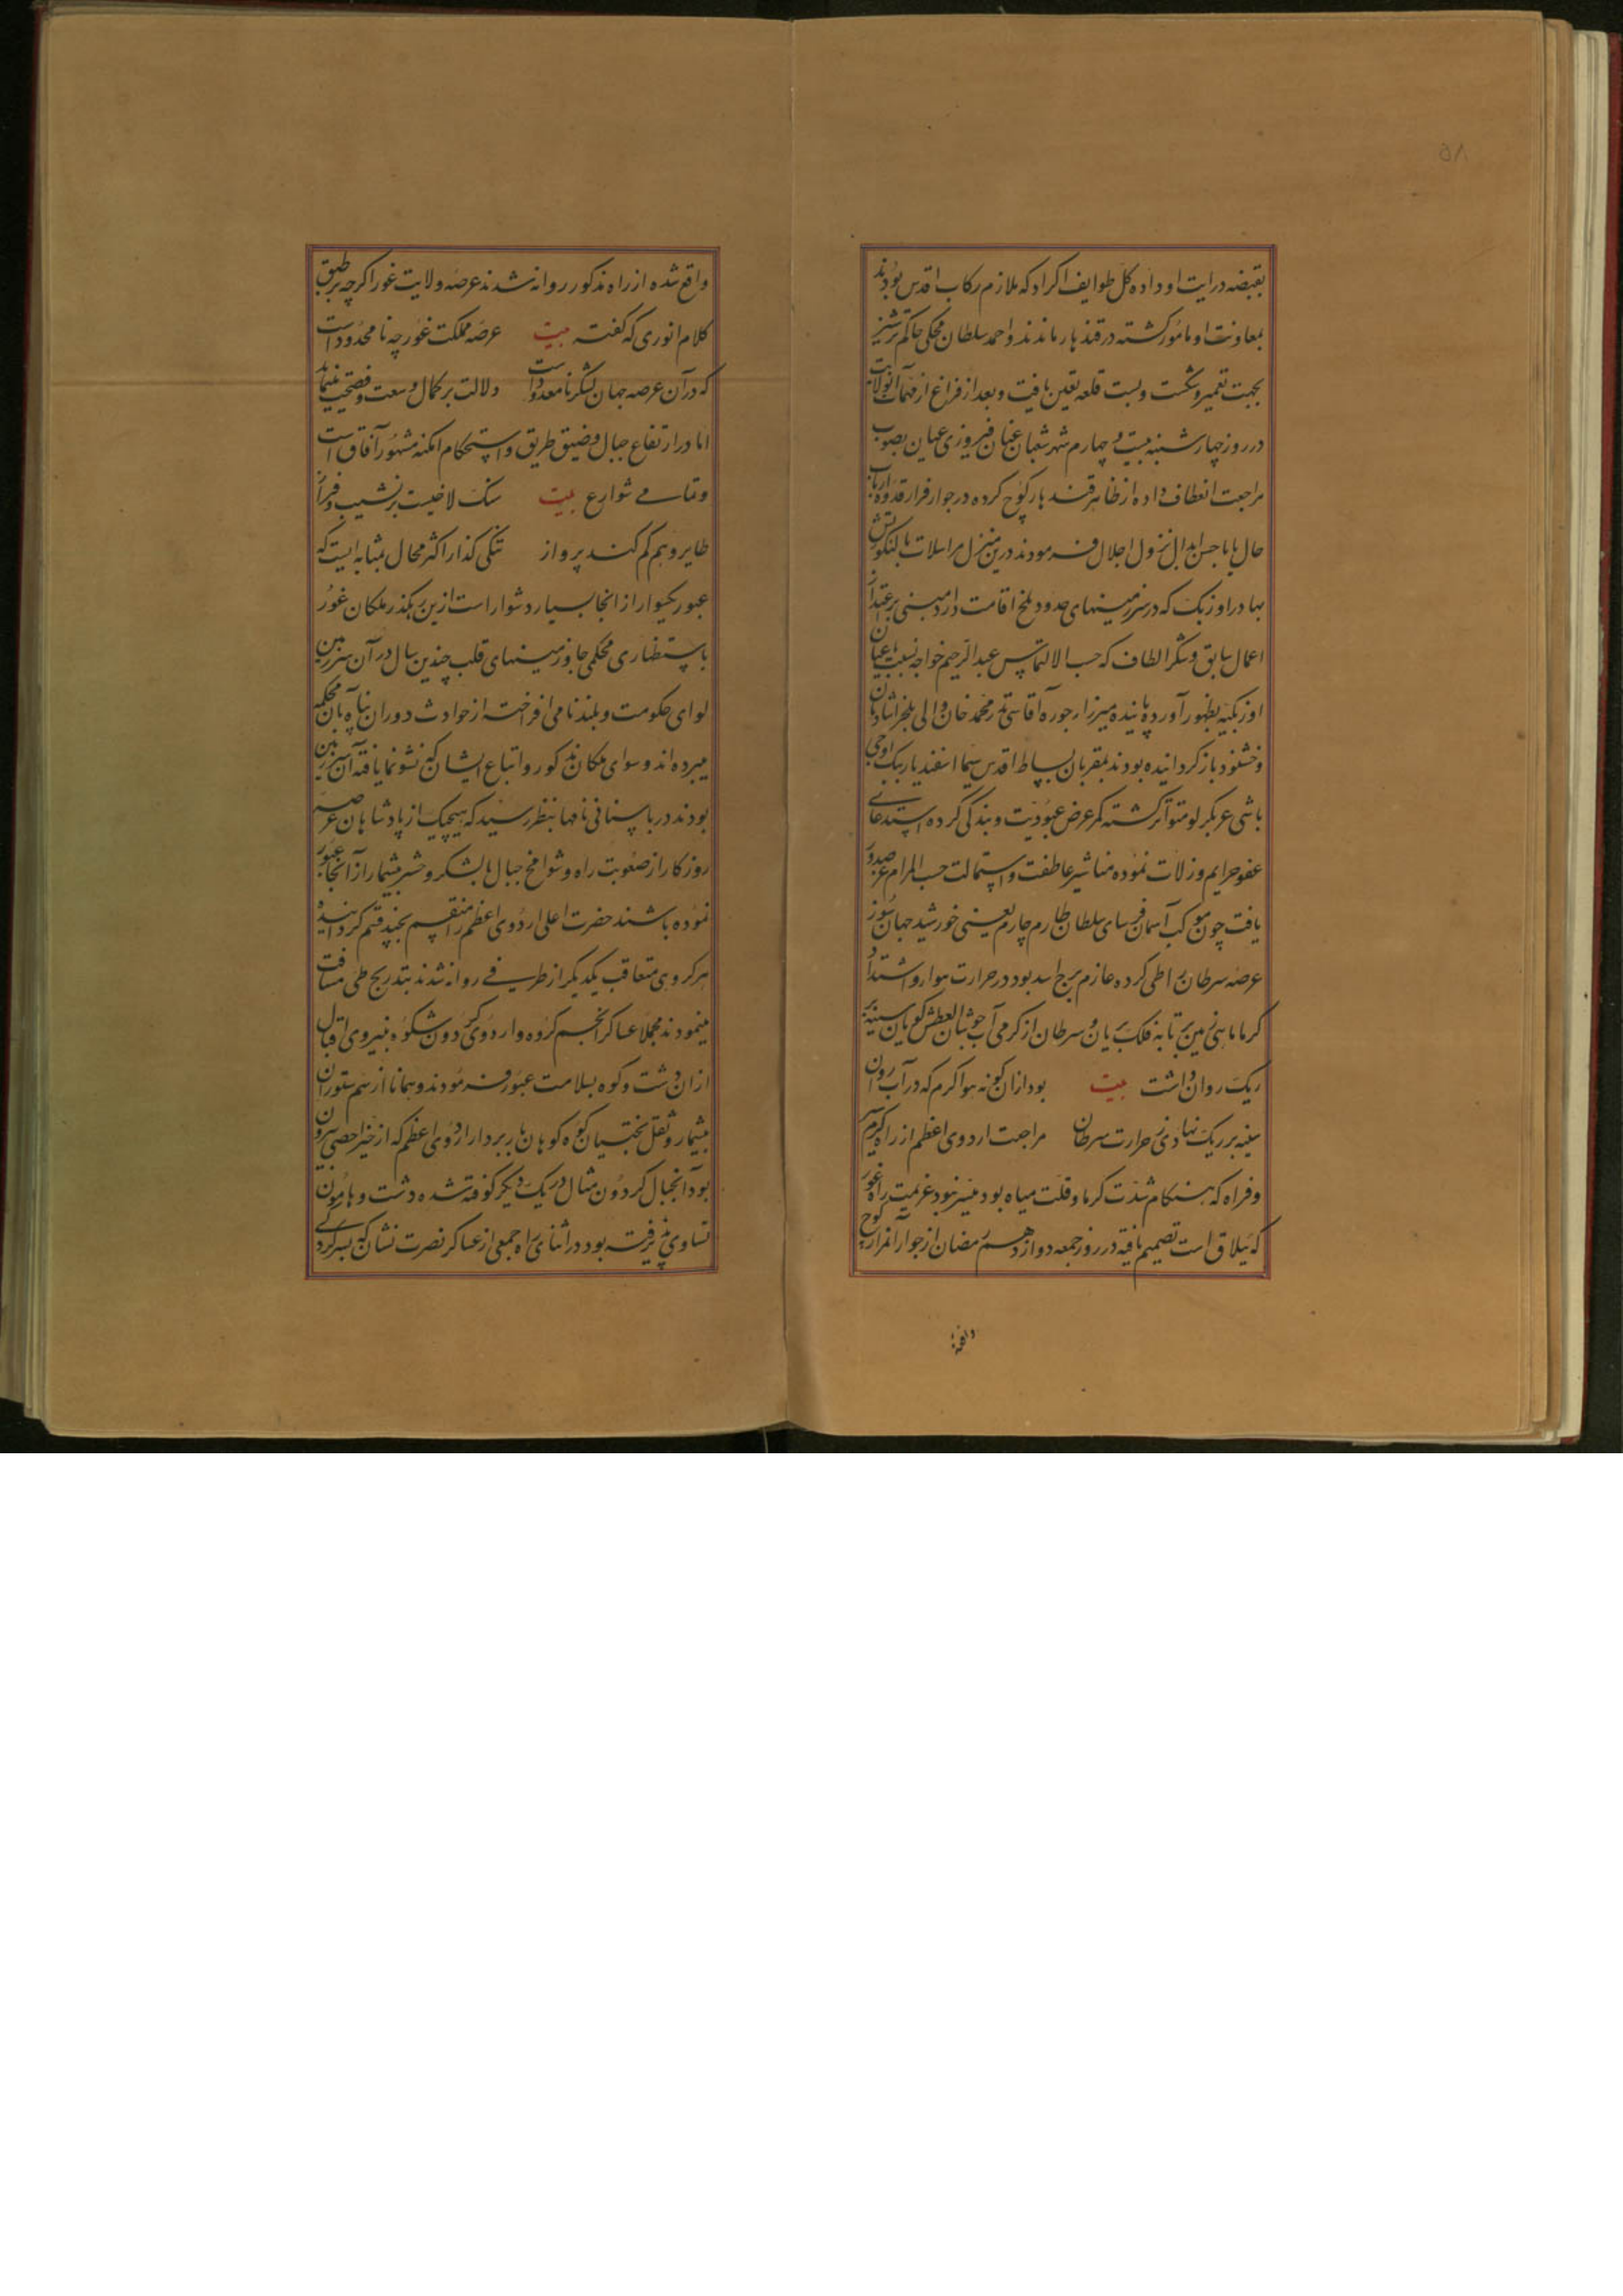 ۵۸
بقبضه درایت او داده کل طوایف اکراد که ملازم رکاب اقدس بودند
بمعاونت او مامور کشته در قندهار ماندند و احمد سلطان منجکی حاکم ترشیز
بجهت تعمیر و شکست و بست قلعه تعین یافت و بعد از فراغ از مهمات آنولایت
در روز چهارشنبه بیست و چهارم شهر شعبان عنان فیروزی عنان بصوب
مراجعت انعطاف داده از ظاهر قندهار کوچ کرده در جوار قدوه ارباب
حال بابا حسن ابدال نزول اجلال فرمودند درین منزل مراسلات یالنکتوش
بهادر اوزبک که در سرزمینهای حدود بلخ اقامت دارد مبنی بر عتذار
اعمال سابق و شکر الطاف که حسب الالتماس عبدالرحیم خواجه نسبت باعیان
اوزبکیه بظهور آورده پاینده میرزا و جوره آقاسی نذر محمد خان والی بلخ را شادمان
و خشنود باز کردانیده بودند بمقربان بساط اقدس سیما اسفندیار بیک اوجی
باشی عربکرلو متواتر کشته مکرر عرض عبودیت و بندکی کرده استدعای
عفو جرایم و زلات نموده مناشیر عاطفت و استمالت حسب المرام عز صدور
یافت چون موکب آسمان فرسای سلطان طارم چارم یعنی خورشید جهان سوز
عرصه سرطان را طی کرده عازم برج اسد بود در حرارت هوا و اشتداد
کرما ماهی زمین بر تابه فلک بریان و سرطان از کرمی آب جوشان العطش کویان سینه بر
ریک روان داشت بیت بود ازان کونه هوا کرم که در آب روان
سینه بر ریک نهادی ز حرارت سرطان مراجعت اردوی اعظم از راه کرمسیر
و فراه که هنکام شدت کرما و قلت میاه بود میسر نبود عزیمت راه غور
که ییلاق است تصمیم یافته در روز جمعه دوازدهم رمضان از جوار آنمزار کوچ
واقع
واقع شده از راه مذکور روانه شدند عرصه ولایت غور اکرچه بر طبق
کلام انوری که کفته بیت عرصه مملکت غور چه نامحدود است
که در آن عرصه جهان لشکر نامعدود است دلالت بر کمال وسعت و فسحت مینماید
اما در ارتفاع جبال و ضیق طریق و استحکام امکنه مشهور آفاق است
و تمامی شوارع بیت سنک لاخیست پر نشیب و فراز
طایر وهم کم کند پرواز تنکی کذار اکثر محال بمثابه ایست که
عبور یکسوار از انجا بسیار دشوار است ازین رهکذر ملکان غور
باستظهاری محکمی جا و زمینهای قلب چندین سال در آن سرزمین
لوای حکومت و بلندنامی افراخته از حوادث دوران پناه بآن محکمه
میبرده اند و سوای ملکان مذکور و اتباع ایشان که نشو نما یافته آن سرزمین
بودند در باستانی نامها بنظر رسید که هیچیک از پادشاهان عرصه
روزکار از صعوبت راه و شوامخ جبال با لشکر و حشر بیشمار از آنجا عبور
نموده باشند حضرت اعلی اردوی اعظم را منقسم بچند قسم کردانیده
هر کروهی متعاقب یکدیکر از طرفی روانه شدند بتدریج طی مسافت
مینمودند مجملا عساکر انجم کروه و اردوی کردون شکوه بنیروی اقبال
از ان دشت و کوه بسلامت عبور فرمودند و همانا از سم ستوران
بیشمار و ثقل بختیان کوه کوهان باربردار اردوی اعظم که از حیز احصی بیرون
بود آنجبال کردون مثال در یک دیکر کوفته شده دشت و هامون
تساوی پذیرفته بود در اثنای راه جمعی از عساکر نصرت نشان که بسرکردکی